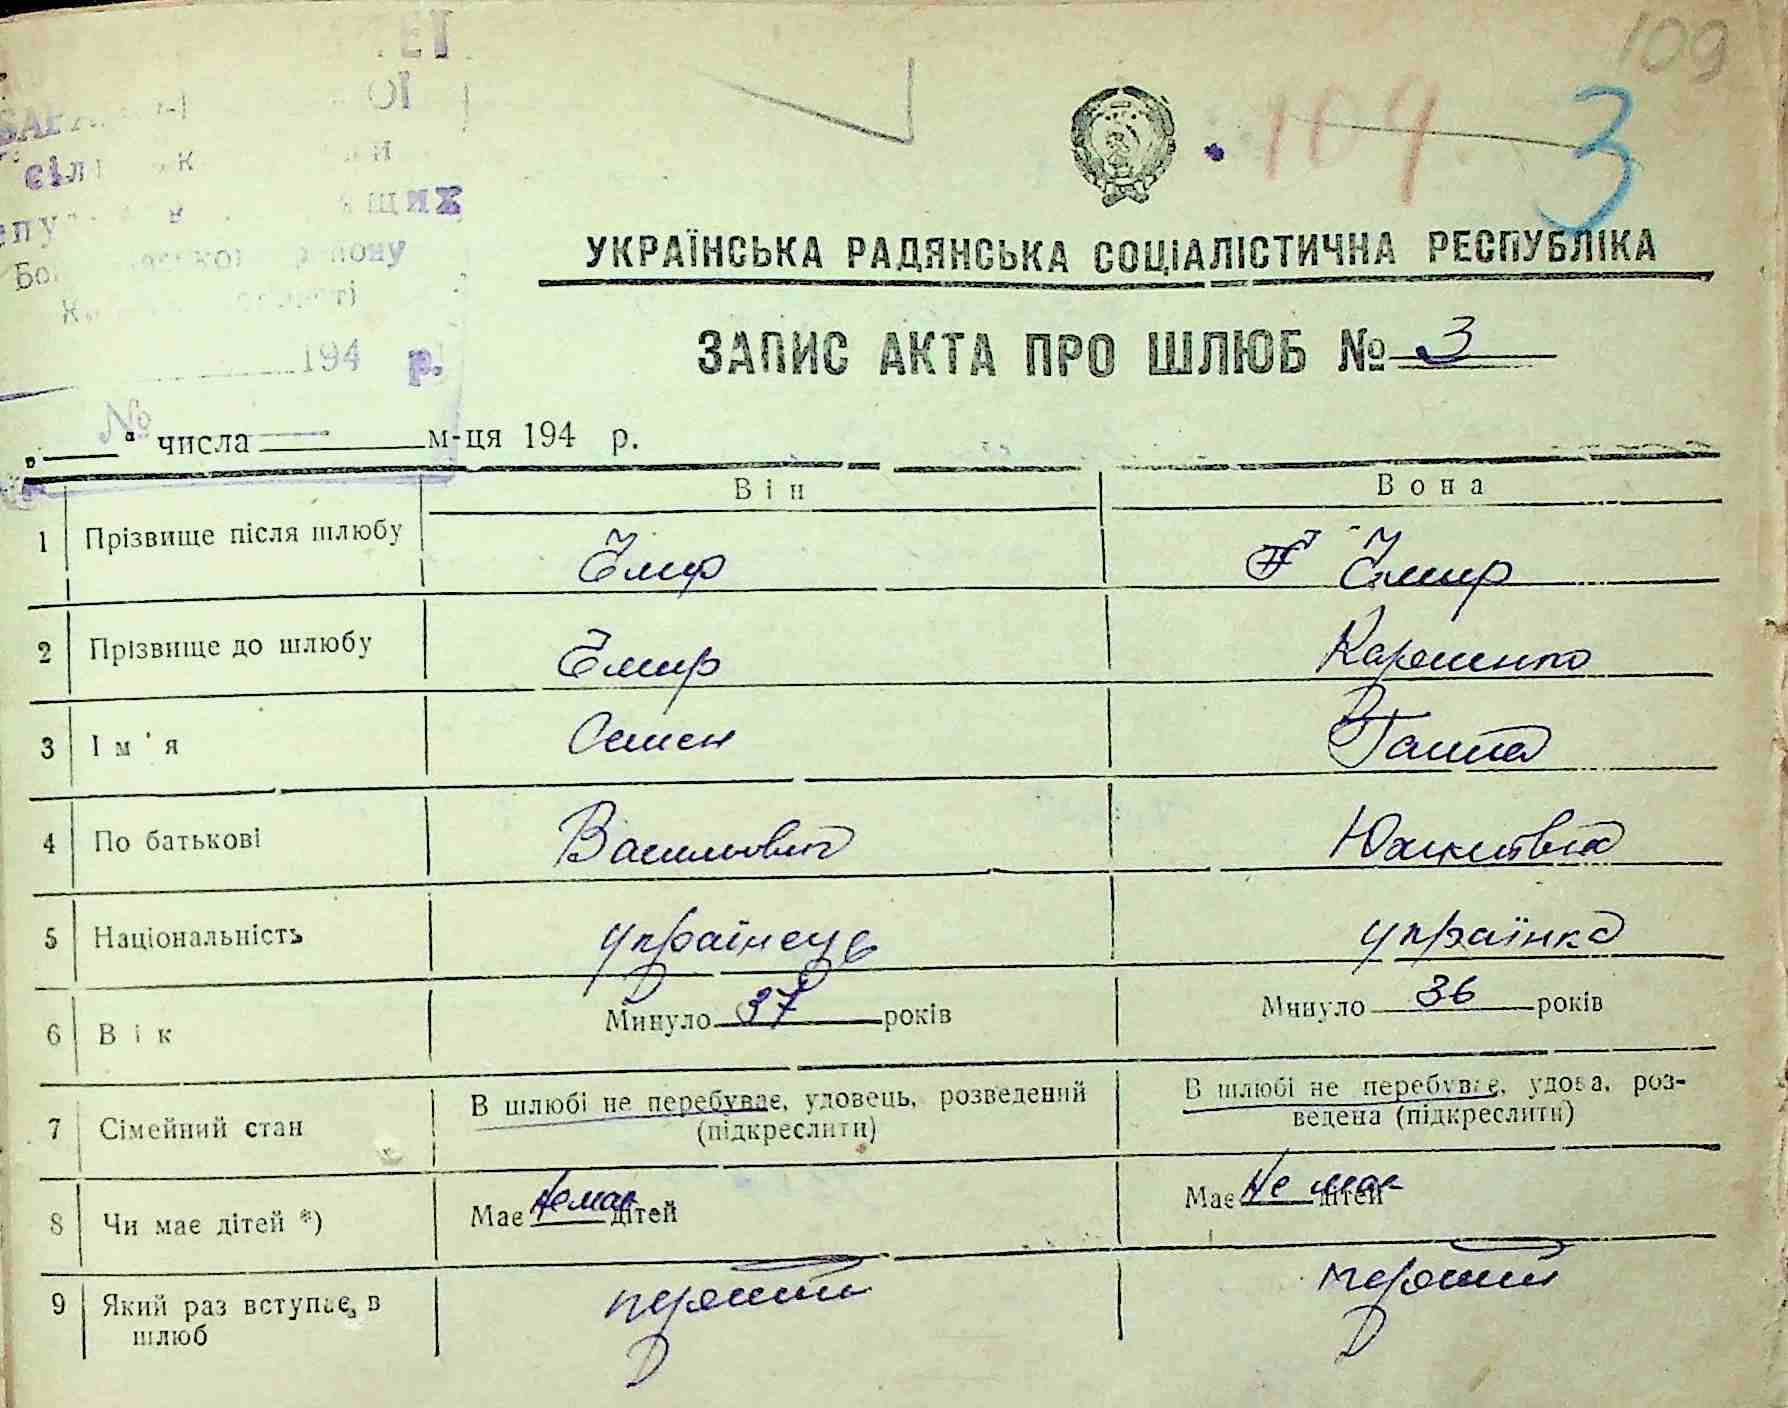 109
109
3
УКРАЇНСЬКА РАДЯНСЬКА СОЦІАЛІСТИЧНА РЕСПУБЛІКА
ЗАПИС АКТА ПРО ШЛЮБ № 3
194 р.
№
„ “ числа м-ця 194 р.
Він Вона
1 Прізвище після шлюбу Ємир Ємир
2 Прізвище до шлюбу Ємир
3 Ім'я Семен Ганна
4 По батькові Васильович
5 Національність українець українка
6 Вік Минуло 37 років Минуло 36 років
7 Сімейний стан В шлюбі не перебуває, удовець, розведений (підкреслити) В шлюбі не перебуває, удова, роз-
ведена (підкреслити)
8 Чи має дітей *) Має немає дітей Має не має дітей
9 Який раз вступає в перший перший
шлюб